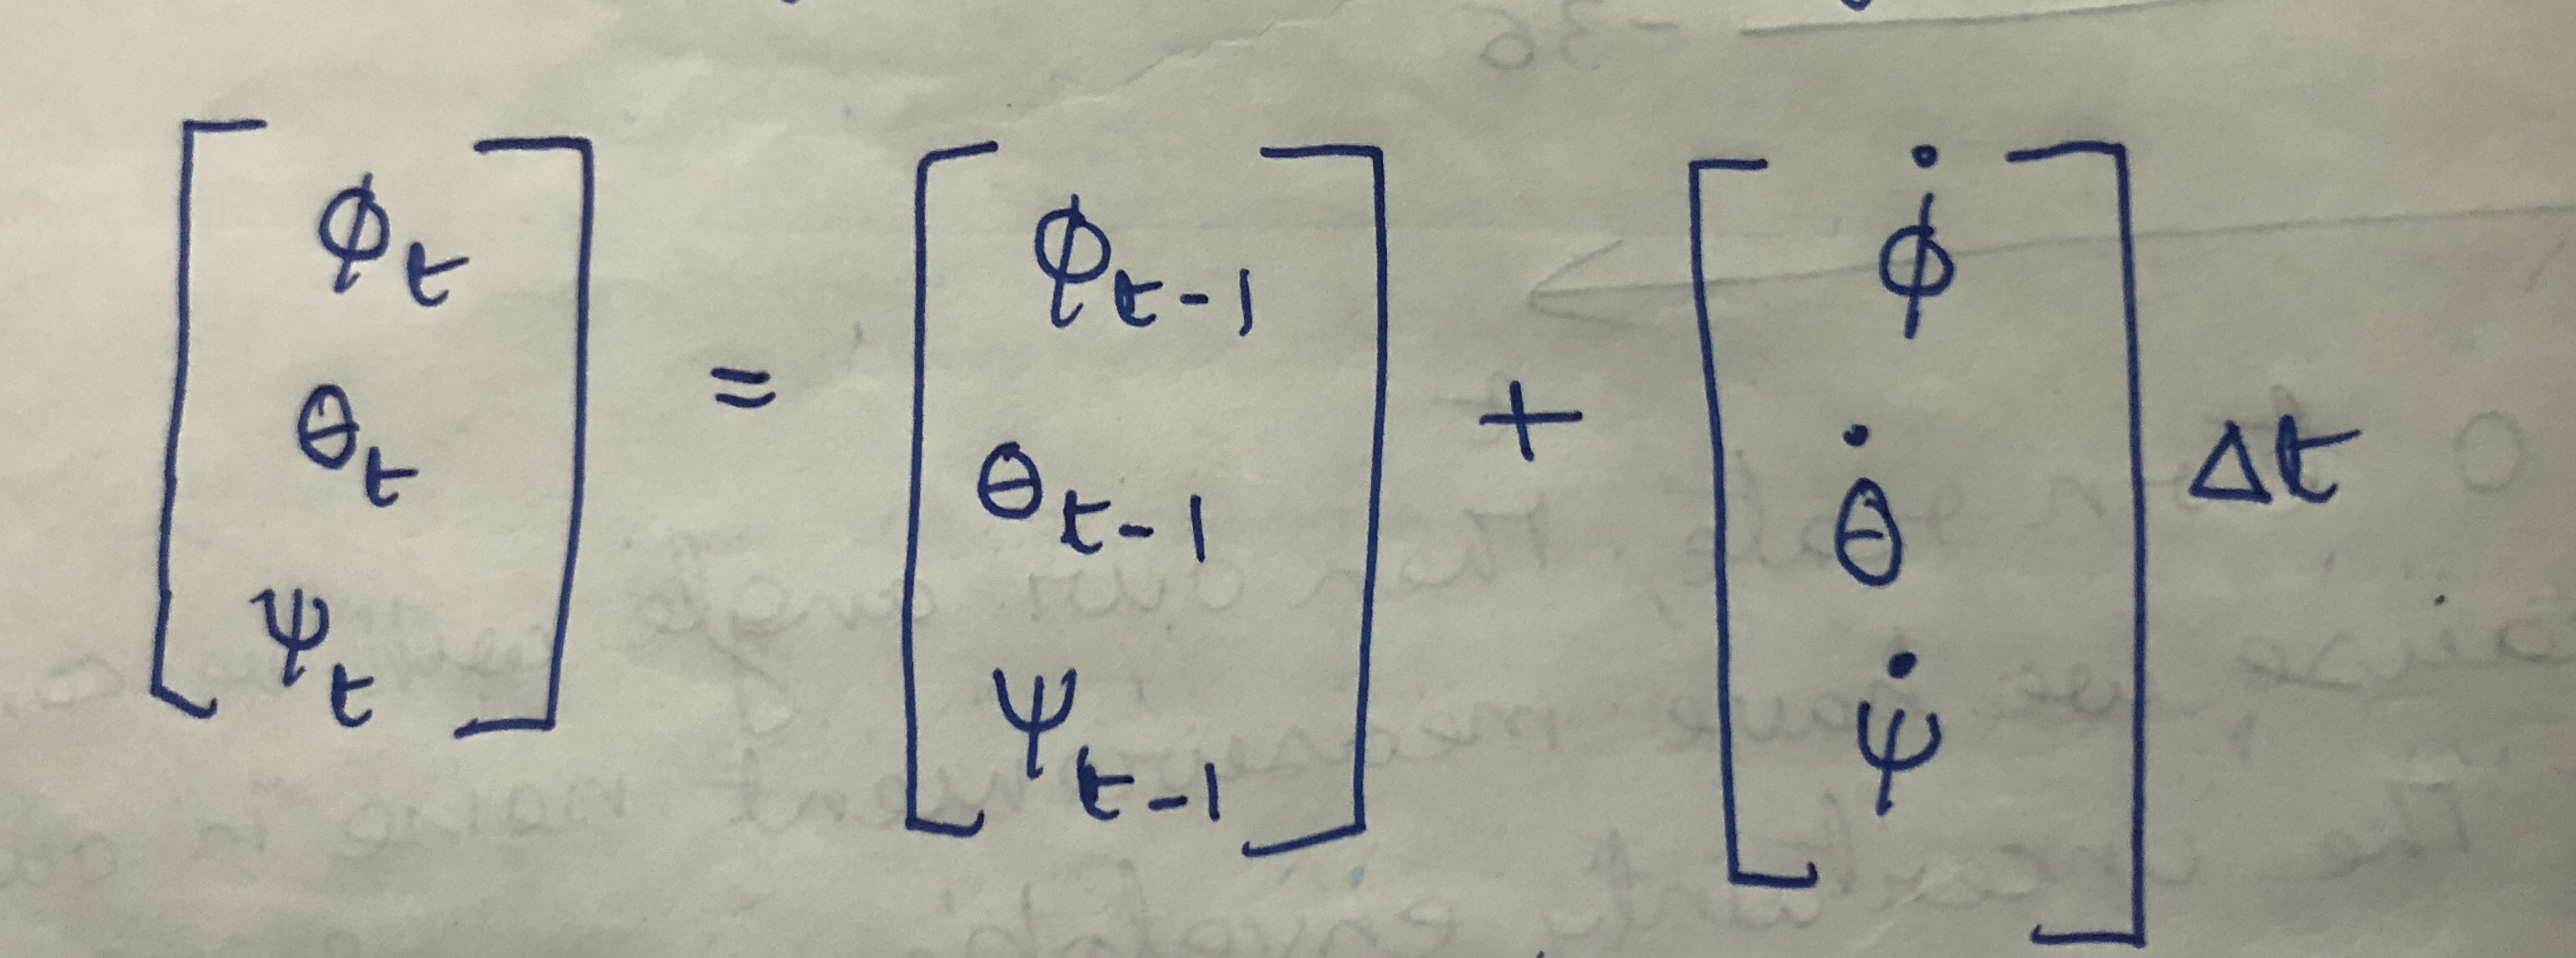 [ϕ_t θ_t ψ_t] = [ϕ_{t-1} θ_{t-1} ψ_{t-1}] + [ϕ̇ θ̇ ψ̇] Δt